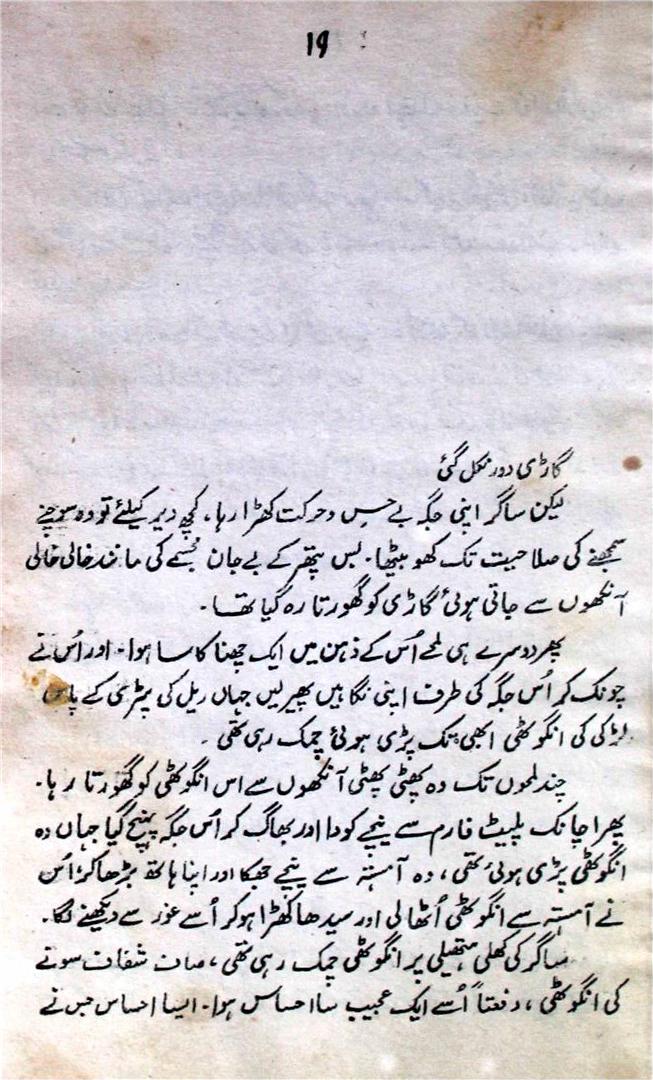 ۱۹
گاڑی دور نکل گئی
لیکن ساگر اپنی جگہ بے حس و حرکت کھڑا رہا، کچھ دیر کیلئے تو وہ سوچنے
سمجھنے کی صلاحیت تک کھو بیٹھا۔ بس پتھر کے بے جان مجسمے کی مانند خالی خالی
آنکھوں سے جاتی ہوئی گاڑی کو گھورتا رہ گیا تھا۔
پھر دوسرے ہی لمحے اُس کے ذہن میں ایک چھناکا سا ہوا۔ اور اُس نے
چونک کر اُس جگہ کی طرف اپنی نگاہیں پھیر لیں جہاں ریل کی پٹڑی کے پاس
لڑکی کی انگوٹھی ابھی تک پڑی ہوئی چمک رہی تھی۔
چند لمحوں تک وہ پھٹی پھٹی آنکھوں سے اس انگوٹھی کو گھورتا رہا۔
پھر اچانک پلیٹ فارم سے نیچے کودا اور بھاگ کر اُس جگہ پہنچ گیا جہاں وہ
انگوٹھی پڑی ہوئی تھی، وہ آہستہ سے نیچے جھکا اور اپنا ہاتھ بڑھا کر اُس
نے آہستہ سے انگوٹھی اُٹھالی اور سیدھا کھڑا ہو کر اُسے غور سے دیکھنے لگا۔
ساگر کی کھلی ہتھیلی پر انگوٹھی چمک رہی تھی، صاف شفاف سونے
کی انگوٹھی، دفعتاً اُسے ایک عجیب سا احساس ہوا۔ ایسا احساس جس نے